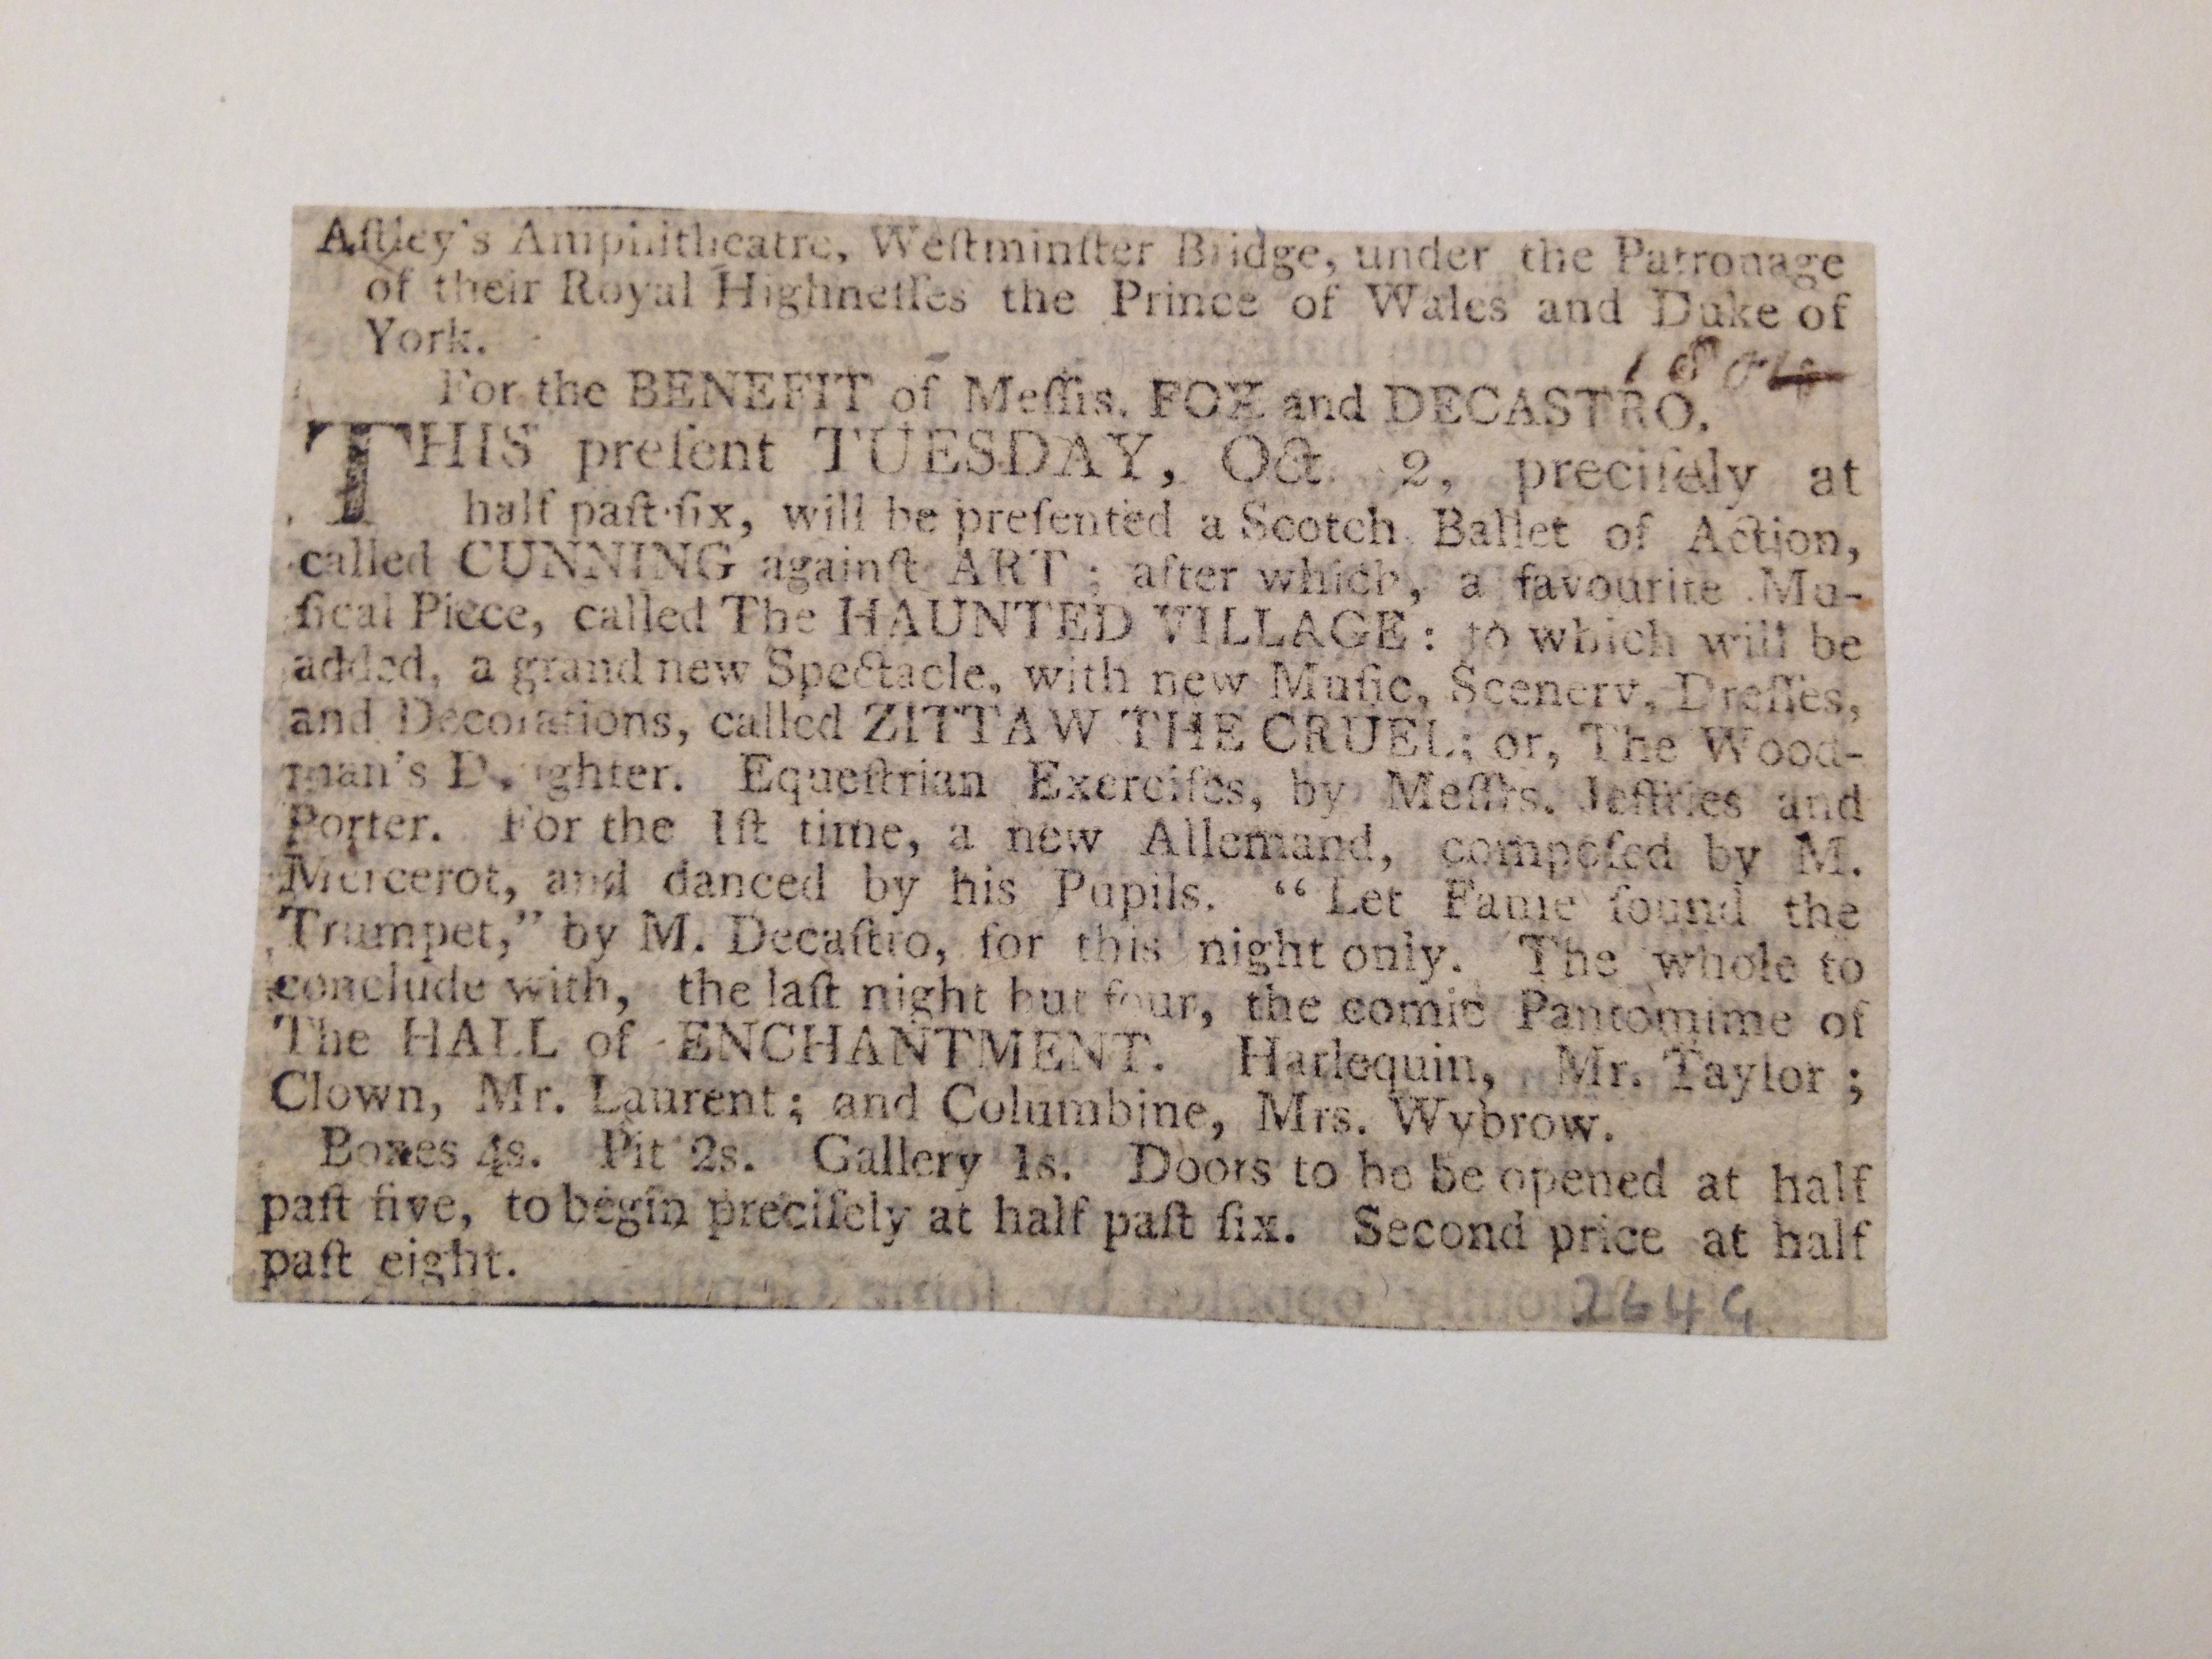 Aſtley's Amphitheatre, Weſtminſter Bridge, under the Patronage
of their Royal Highneſſes the Prince of Wales and Duke of
York.
For the BENEFIT of Meſſrs. FOX and DECASTRO.
THIS preſent TUESDAY, Oct. 2, preciſely at
half paſt ſix, will be preſented a Scotch Ballet of Action,
called CUNNING againſt ART; after which, a favourite Mu-
ſical Piece, called The HAUNTED VILLAGE: to which will be
added, a grand new Spectacle, with new Muſic, Scenery, Dreſſes,
and Decorations, called ZITTAW THE CRUEL; or, The Wood-
man's Daughter. Equeſtrian Exerciſes, by Meſſrs. Jeffries and
Porter. For the 1ſt time, a new Allemand, compoſed by M.
Mercerot, and danced by his Pupils. “Let Fame ſound the
Trumpet,” by M. Decaſtro, for this night only. The whole to
conclude with, the laſt night but four, the comic Pantomime of
The HALL of ENCHANTMENT. Harlequin, Mr. Taylor;
Clown, Mr. Laurent; and Columbine, Mrs. Wybrow.
Boxes 4s. Pit 2s. Gallery 1s. Doors to be be opened at half
paſt five, to begin preciſely at half paſt ſix. Second price at half
paſt eight.